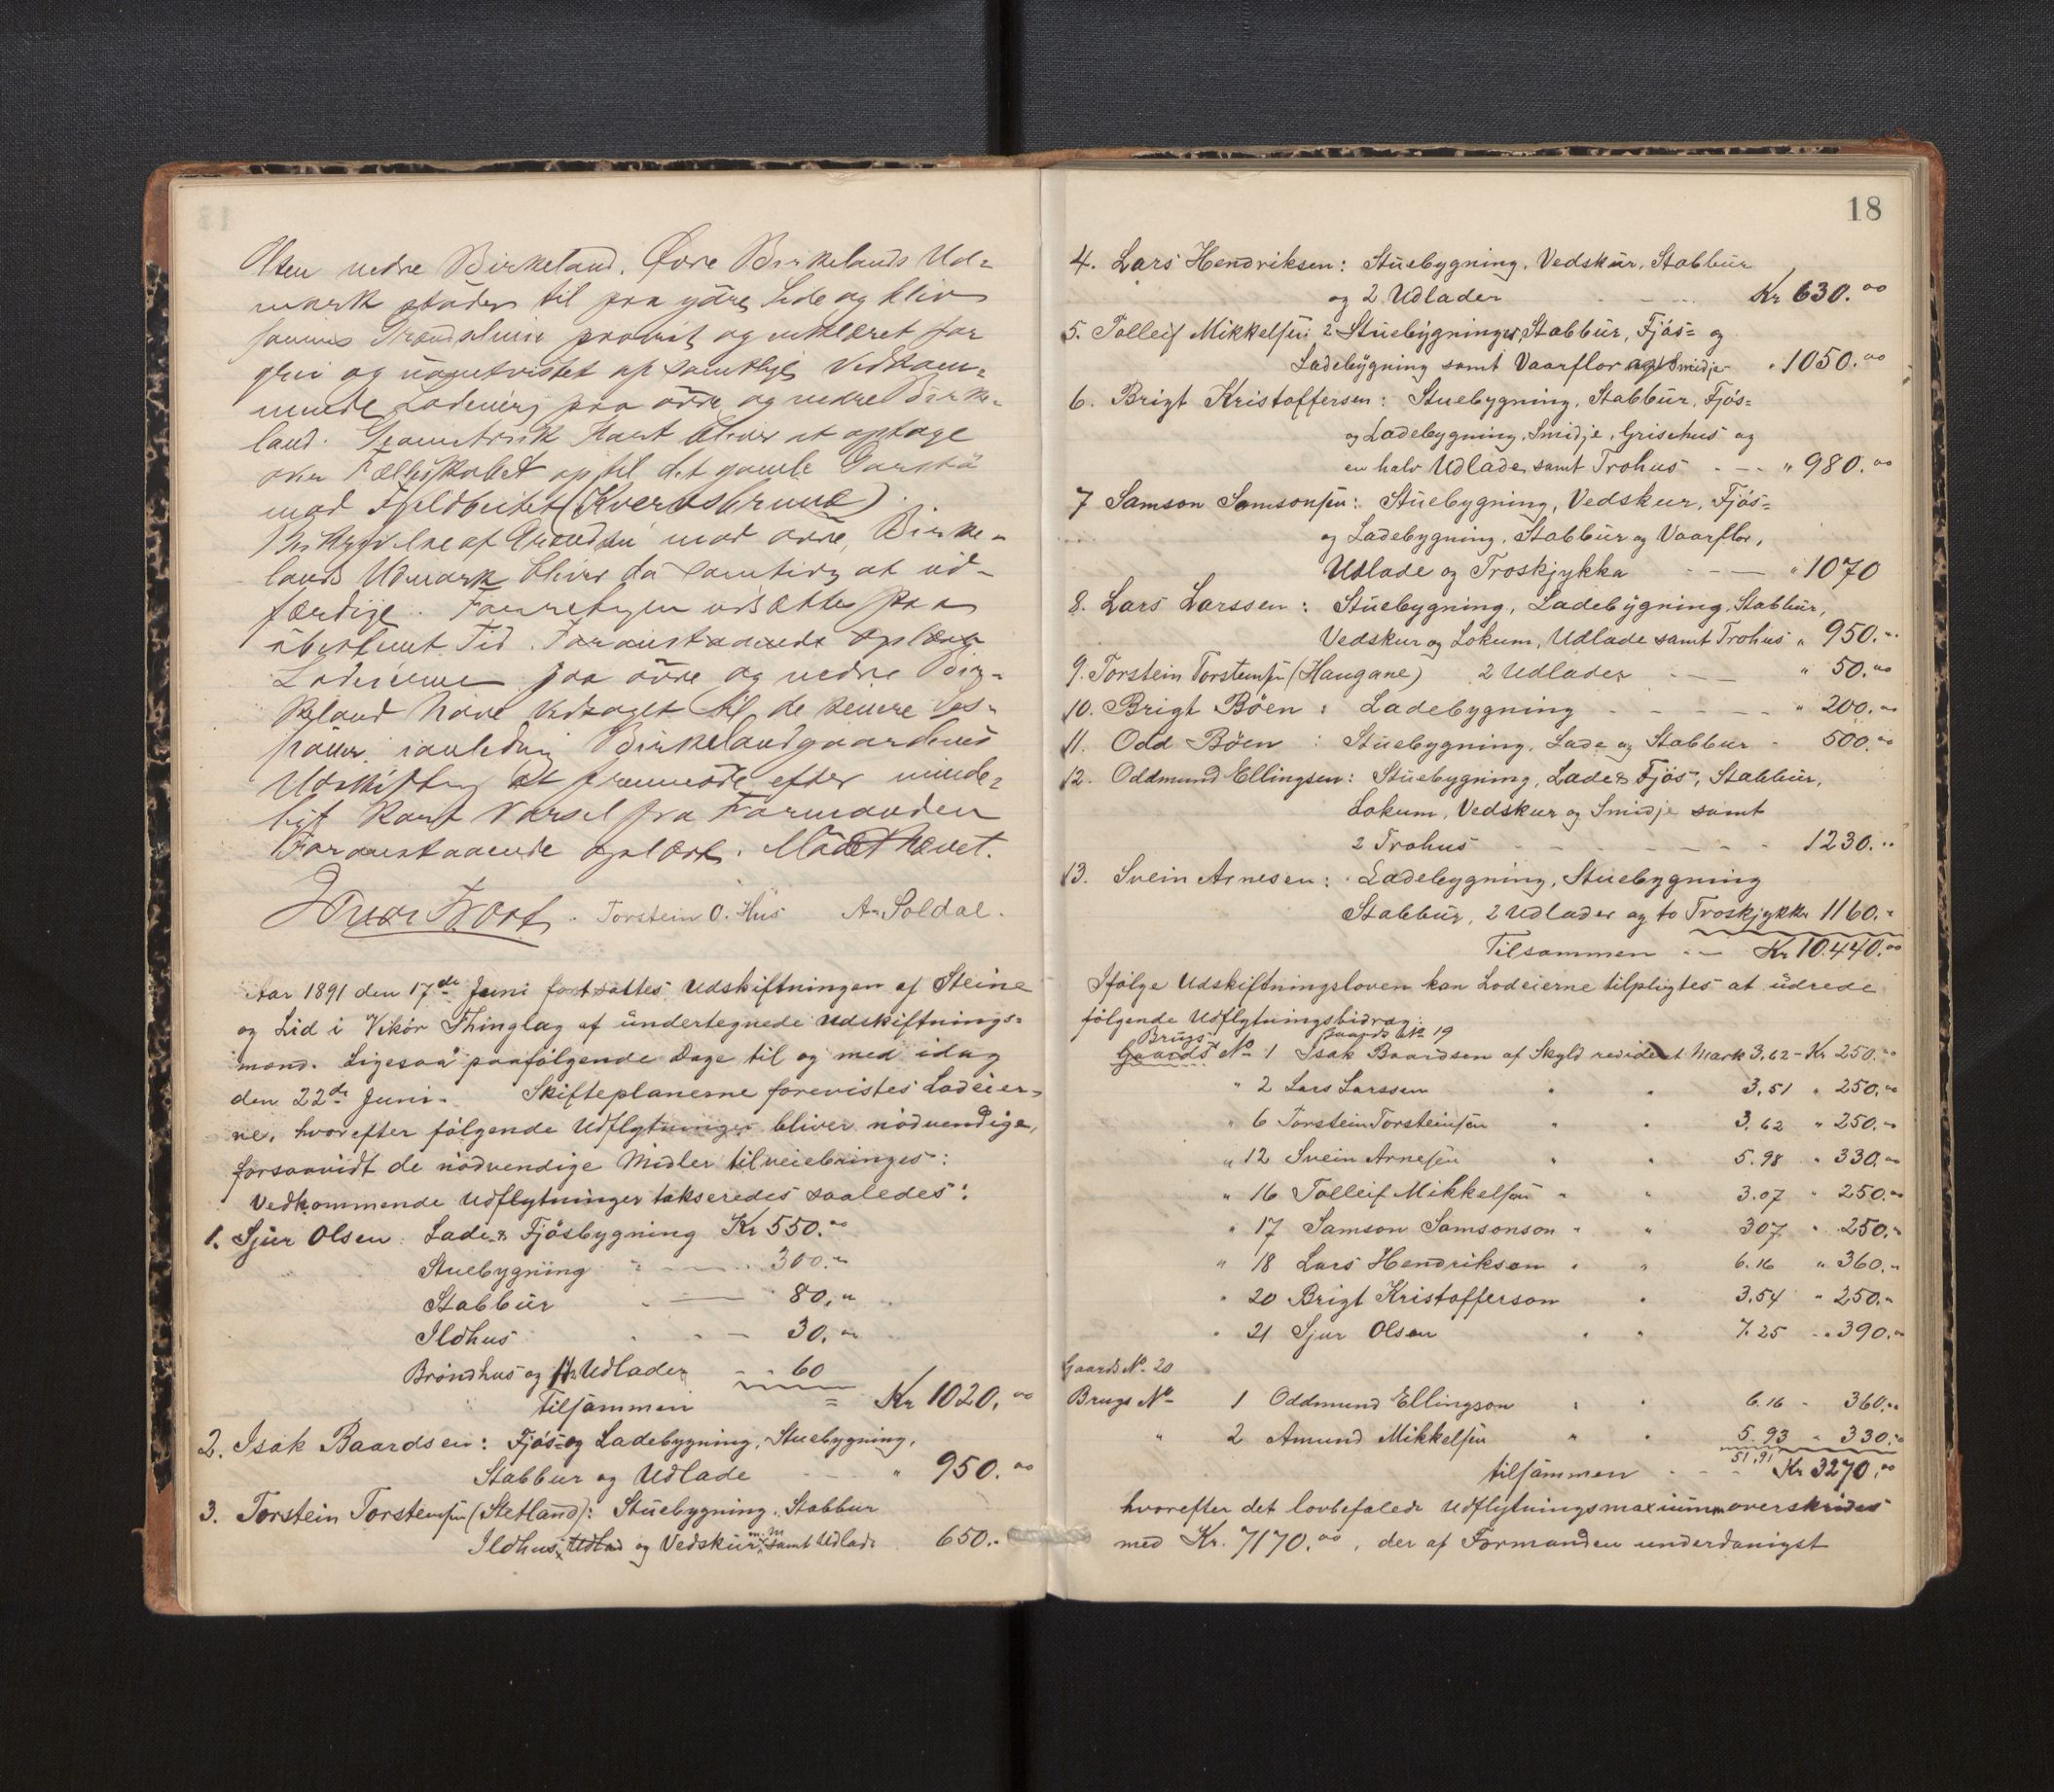 Olsen nedre Birkeland. Øvre Birkelands Ud-
mark støder til paa ydre Side og bliv
paavist og erklæret for
og uomtvistet af samtlige Vedkom-
mende Lodeiere paa øvre og nedre Birke-
land. Geometrisk Kart bliver at optage
over Fællesskabet op til det gamle
mod Fjeldbeitet (
Beskrivelse af mod øvre Birke-
lands Udmark bliver da samtidig at ud-
færdige. Forretningen udsættes paa
ubestemt Tid. Foranstaaende oplæst
Lodeierne paa øvre og nedre Bir-
keland have vedtaget til de senere
i anledning Birkelandgaardenes
Udskiftning at fremmøde efter minde-
lig kort Varsel fra Formanden
Foranstaaende oplæst. Mødet hævet.
Torstein O. Hus A. Soldal.
Aar 1891 den 17de Juni fortsattes Udskiftningen af Steine
og Lid i Vikør Thinglag af undertegnede Udskiftnings-
mænd. Ligesaa paafølgende Dage til og med idag
den 22de Juni. Skifteplanerne forevistes Lodeier-
ne, hvorefter følgende Udflytninger bliver nødvendige,
forsaavidt de nødvendige Midler tilveiebringes:
Vedkommende Udflytninger takseredes saaledes:
1. Sjur Olsen: Lade & Fjøsbygning Kr 550.00
Stuebygning " — " 300."
Stabbur " — " 80."
Ildhus " " — 30."
Brøndhus og Udlader — 60
Tilsammen = Kr 1020.00
2. Isak Baardsen: Fjøs- og Ladebygning, Stuebygning,
Stabbur og Udlade " 950.00
3. Torstein Torsteinsen (Stetland): Stuebygning, Stabbur
Ildhus, Udlad og Vedskur m.m samt Udlade 650.-
18
4. Lars Hendriksen: Stuebygning, Vedskur, Stabbur
og 2 Udlader Kr 630.00
5. Tolleif Mikkelsen: 2 Stuebygninger, Stabbur, Fjøs- og
Ladebygning samt Vaarflor og Smidje " 1050.00
6. Brigt Kristoffersen: Stuebygning, Stabbur, Fjøs-
og Ladebygning, Smidje, Grisehus og
en halv Udlade samt Trohus - — " 980.00
7 Samson Samsonsen: Stuebygning, Vedskur, Fjøs-
og Ladebygning, Stabbur og Vaarflor,
Udlade og Troskjykka - - — " 1070
8. Lars Larssen: Stuebygning, Ladebygning, Stabbur,
Vedskur og Lokum, Udlade samt Trohus " 950."
9. Torstein Torsteinsen (Haugane) 2 Udlader - — " 50.00
10. Brigt Bøen: Ladebygning - - - — " 200."
11. Odd Bøen: Stuebygning, Lade og Stabbur - 500."
12. Oddmund Ellingsen: Stuebygning, Lade & Fjøs, Stabbur,
Lokum, Vedskur og Smidje samt
2 Trohus - - - - - 1230."
13. Svein Arnesen: Ladebygning, Stuebygning
Stabbur, 2 Udlader og to Troskjykker 1160."
Tilsammen - — Kr 10.440.00
Ifølge Udskiftningsloven kan Lodeierne tilpligtes at udrede
følgende Udflytningsbidrag:
Brugs Gaards No 19
Gaards No 1 Isak Baardsen af Skyld revideret Mark 3,62 - Kr 250."
" 2 Lars Larssen " " 3,51 " 250."
" 6 Torstein Torsteinsen " " 3.62 " 250."
" 12 Svein Arnesen " " 5.98 " 330."
" 16 Tolleif Mikkelsen " " 3.07 " 250."
" 17 Samson Samsonson " " 307 " 250."
" 18 Lars Hendrikson " " 6.16 " 360."
" 20 Brigt Kristofferson " 3.54 " 250."
" 21 Sjur Olsen " " 7.25 " 390."
Gaards No 20
Brugs No 1 Oddmund Ellingson " " 6.16 - 360."
" 2 Amund Mikkelsen " " 5.93 " 330."
51.91
tilsammen - - Kr 3270.00
hvorefter det lovbefalede Udflytningsmaximum overskrides
med Kr. 7170.00, der af Formanden underdanigst